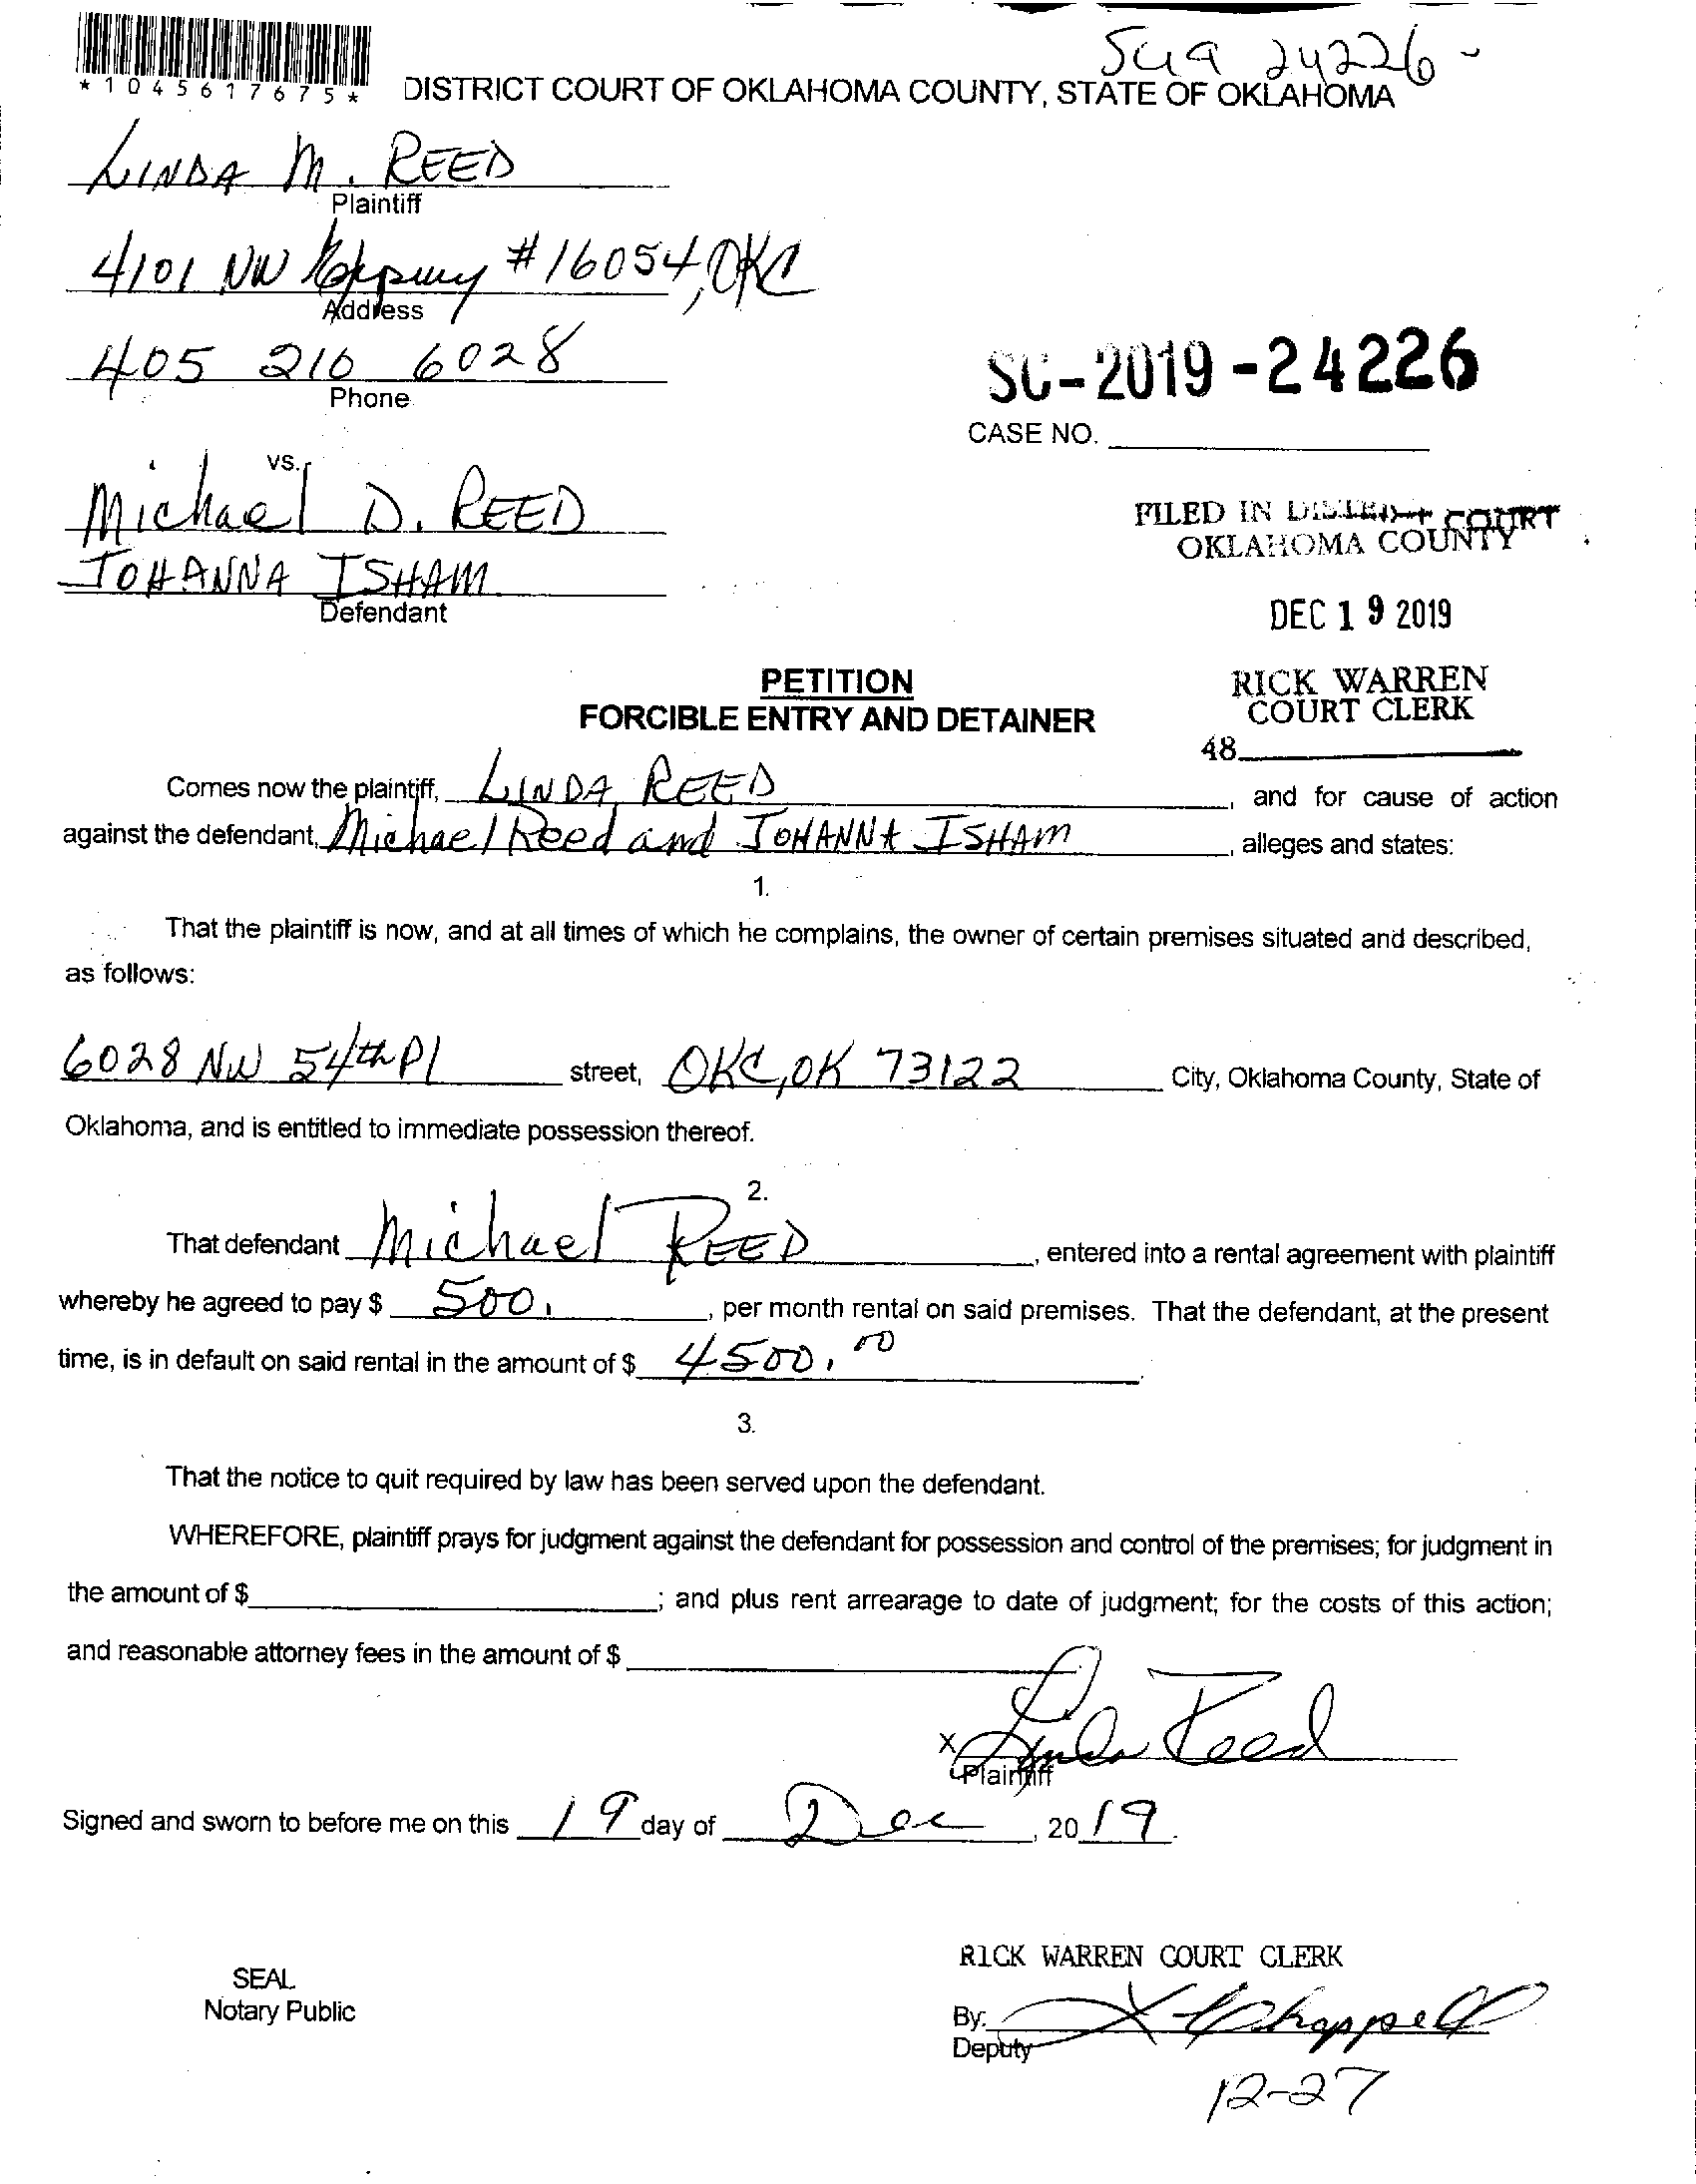 SC19 24226-
*1045617675*
DISTRICT COURT OF OKLAHOMA COUNTY, STATE OF OKLAHOMA
LINDA M. REED
Plaintiff
4101 NW Expwy #16054, OKC
Address
405 210 6028
Phone
SC-2019-24226
CASE NO.
vs.
Michael D. REED
JOHANNA ISHAM
Defendant
FILED IN DISTRICT COURT
OKLAHOMA COUNTY
DEC 19 2019
RICK WARREN
COURT CLERK
48
PETITION
FORCIBLE ENTRY AND DETAINER
Comes now the plaintiff, LINDA REED, and for cause of action
against the defendant, Michael Reed and JOHANNA ISHAM, alleges and states:
1.
That the plaintiff is now, and at all times of which he complains, the owner of certain premises situated and described,
as follows:
6028 NW 54th Pl street, OKC, OK 73122 City, Oklahoma County, State of
Oklahoma, and is entitled to immediate possession thereof.
2.
That defendant Michael REED, entered into a rental agreement with plaintiff
whereby he agreed to pay $ 500., per month rental on said premises. That the defendant, at the present
time, is in default on said rental in the amount of $ 4500.00.
3.
That the notice to quit required by law has been served upon the defendant.
WHEREFORE, plaintiff prays for judgment against the defendant for possession and control of the premises; for judgment in
the amount of $ ; and plus rent arrearage to date of judgment; for the costs of this action;
and reasonable attorney fees in the amount of $
x Linda Reed
Plaintiff
Signed and sworn to before me on this 19 day of Dec, 2019.
SEAL
Notary Public
RICK WARREN COURT CLERK
By: Chappell
Deputy
12-27